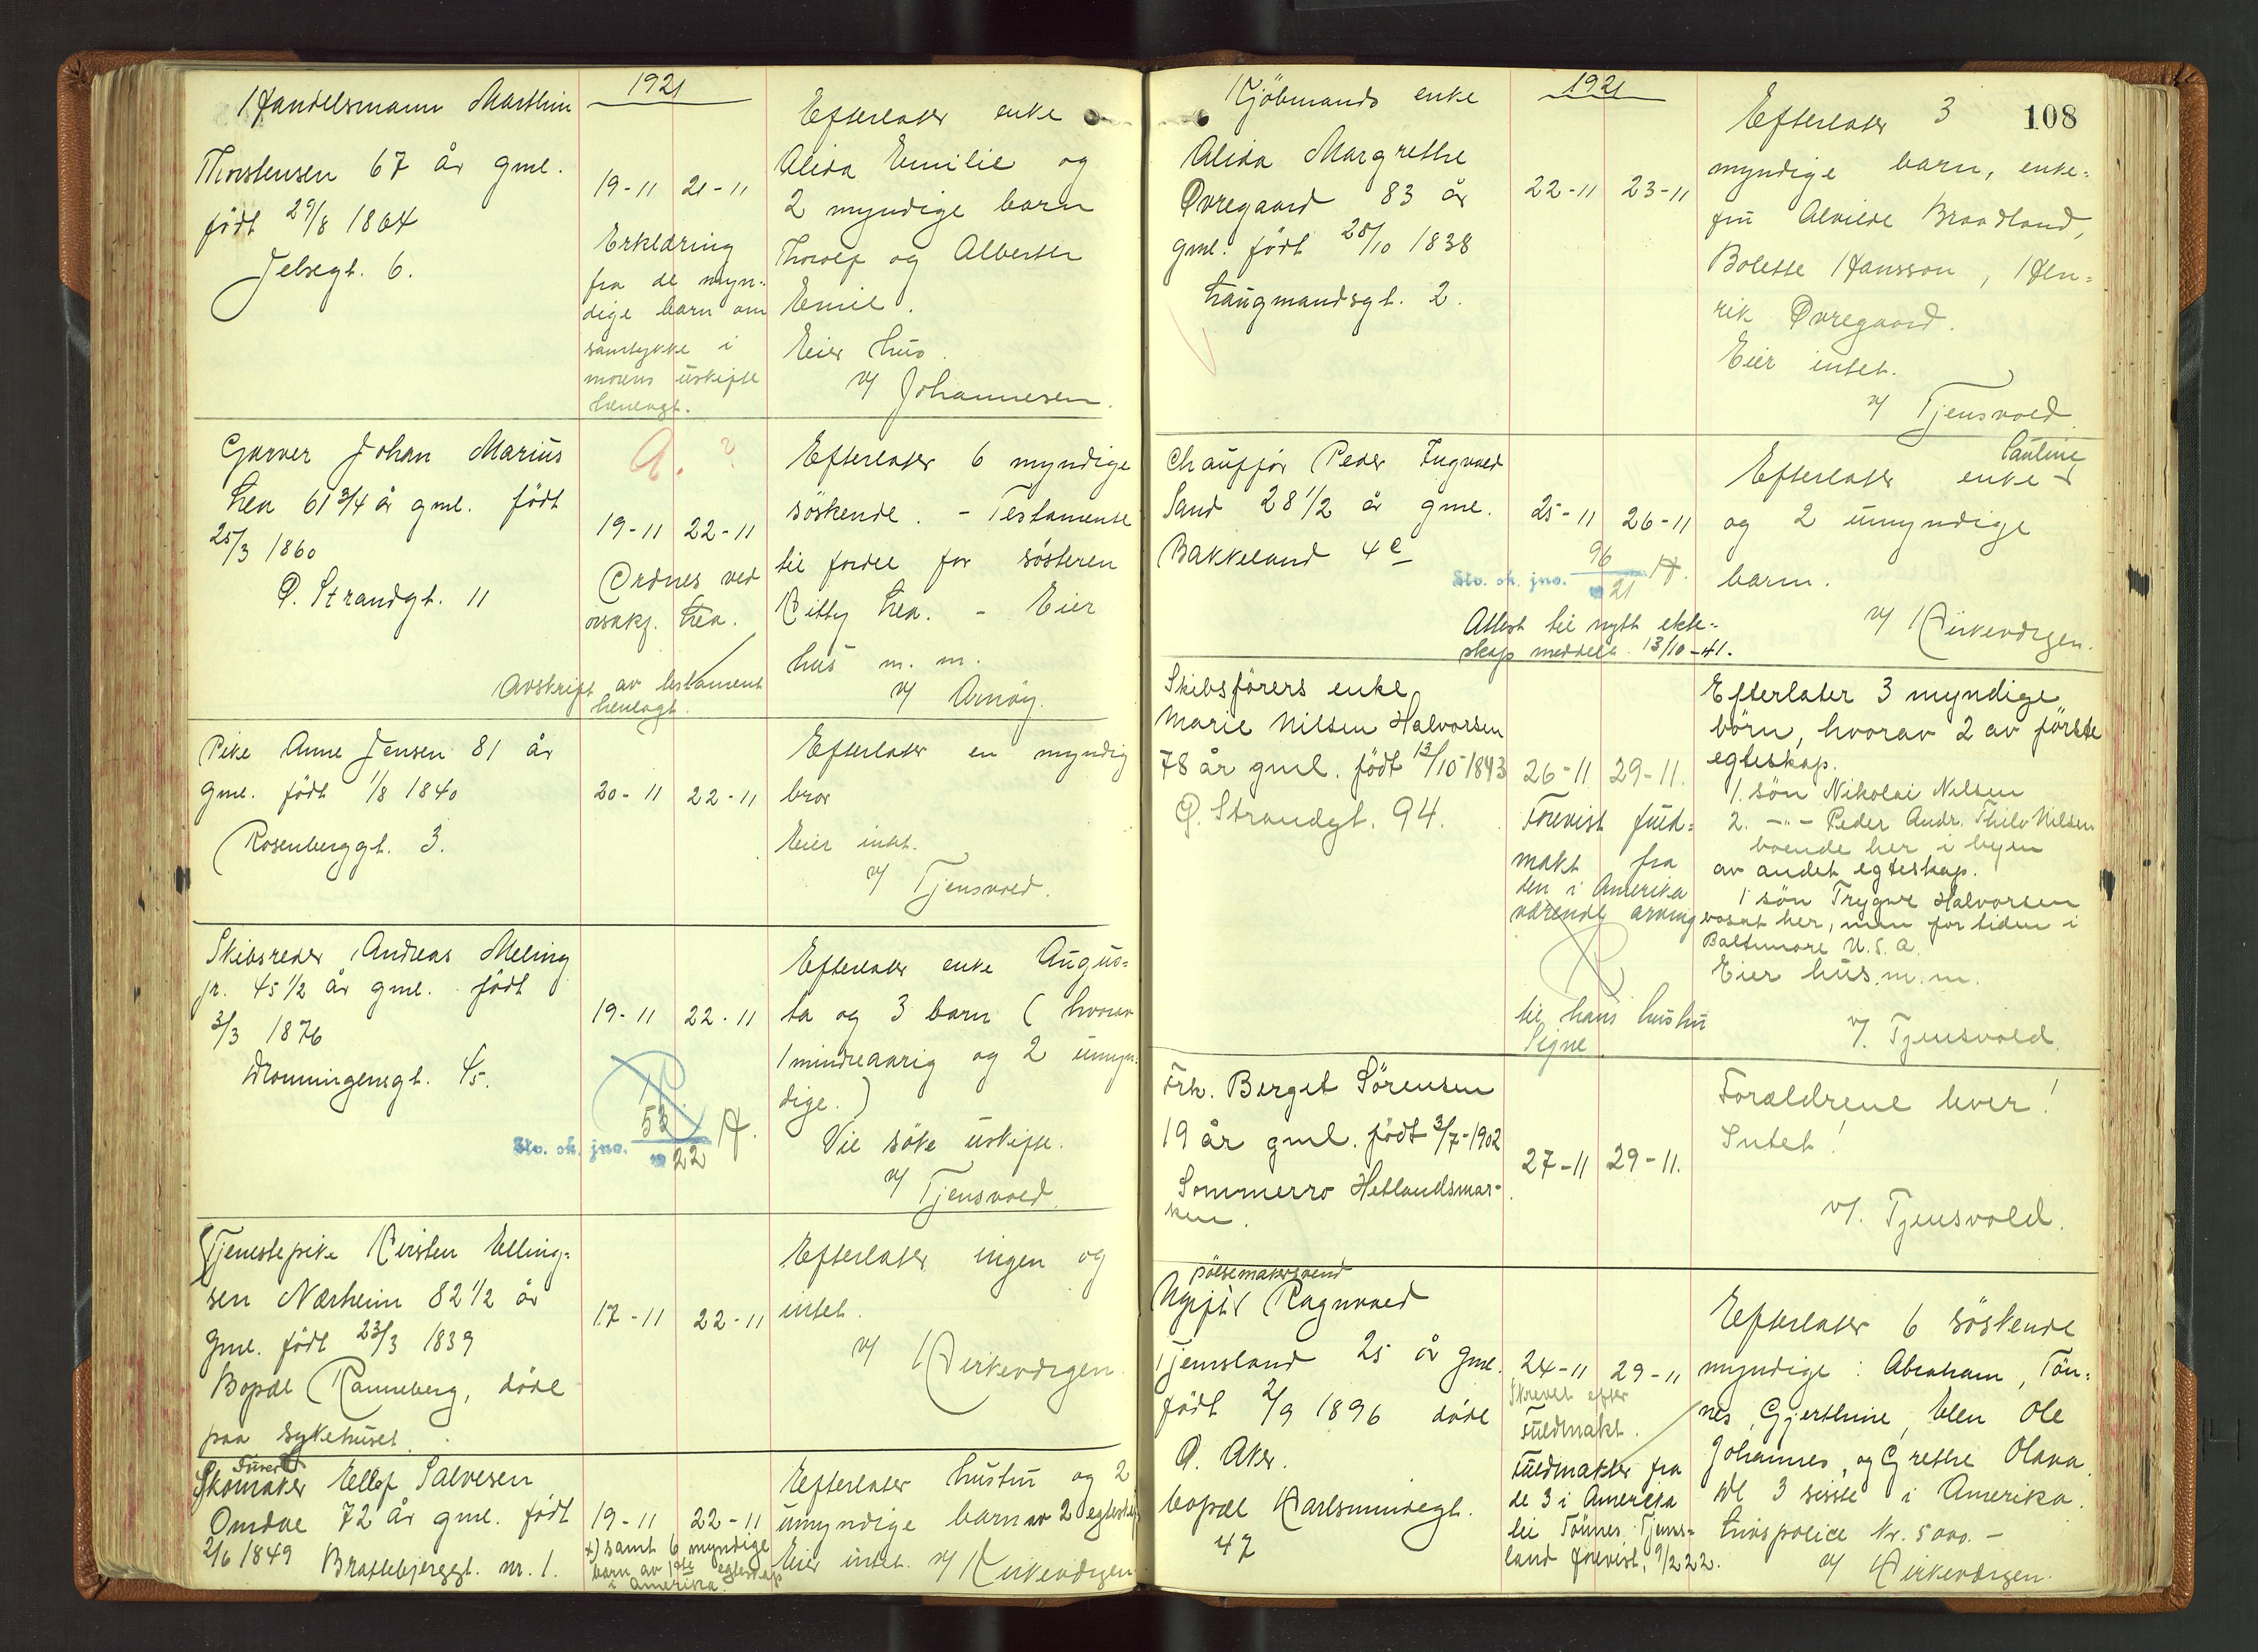 1921
Handelsmann Marthin
Thorstensen 67 år gml.
født 29/8 1864
Jelsegt. 6.
19-11 21-11
Erklæring
fra de myn-
dige barn om
samtykke i
morens uskifte
henlagt.
Efterlater enke
Alida Emilie og
2 myndige barn
Thorolf og Alberth
Emil.
Eier hus.
v/ Johannesen.
Garver Johan Marius
Lea 61 3/4 år gml. født
25/3 1860
Ø. Strandgt. 11
19-11 22-11
Ordnes ved
orsakf. Lea.
Avskrift av testament
henlagt.
Efterlater 6 myndige
søskende. - Testamente
til fordel for søsteren
Kitty Lea. - Eier
hus m. m.
v/ Arnøy.
Pike Anne Jensen 81 år
gml. født 1/8 1840
Rosenberggt. 3.
20-11 22-11
Efterlater en myndig
bror
Eier intet.
v/ Tjensvold.
Skibsreder Andreas Meling
jr. 45 1/2 år gml. født
3/3 1876
Dronningensgt. 45.
19-11 22-11
Stv. sk. jno. 53/22 A.
Efterlater enke Augus-
ta og 3 barn (hvorav
1 mindreaarig og 2 umyn-
dige.)
Vil søke uskifte.
v/ Tjensvold.
Tjenestepike Kirsten Elling-
sen Nærheim 82 1/2 år
gml. født 23/3 1839
Bopæl Ranneberg, døde
paa sykehuset.
17-11 22-11
Efterlater ingen og
intet.
v/ Kirkevågen.
Skomaker Ellef Salvesen
Omdal 72 år gml. født
2/6 1849 Brattebjerggt. nr. 1.
19-11 22-11
x) samt 6 myndige
barn av 1ste egteskap
i Amerika.
Efterlater hustru og 2
umyndige barn av 2 egteskap
Eier intet. v/ Kirkevågen.
1921
108
Kjøbmands enke
Alida Margrethe
Øvregaard 83 år
gml. født 28/10 1838
Laugmandsgt. 2.
22-11 23-11
Efterlater 3
myndige barn, enke-
fru Alvilde Braadland,
Bolette Hansson, Hen-
rik Øvregaard.
Eier intet.
v/ Tjensvold.
Chauffør Peder Ingvald
Sand 28 1/2 år gml.
Bakkeland 4 c
25-11 26-11
Stv. sk. jno. 96/21 A.
Attest til nytt ekte-
skap meddelt 13/10-41.
Efterlater enke Pauline
og 2 umyndige
barn.
v/ Kirkevågen.
Skibsførers enke
Marie Nilsen Halvorsen
78 år gml. født 13/10-1843
Ø. Strandgt. 94.
26-11 29-11.
Forevist fuld-
makt fra
den i Amerika
værende arving
til hans hustru
Signe.
Efterlater 3 myndige
børn, hvorav 2 av første
egteskap.
1. søn Nikolai Nilsen
2. -"- Peder Andr. Thilo Nilsen
boende her i byen
av andet egteskap.
1 søn Trygve Halvorsen
bosat her, men for tiden i
Baltimore U.S.A.
Eier hus. m.m.
v/. Tjensvold.
Frk. Berget Sørensen
19 år gml. født 3/7-1902
Sommerro Hetlandsmar-
ken.
27-11 29-11.
Forældrene lever!
Intet!
v/. Tjensvold.
pølsemakersvend
Ugift Ragnvald
Tjemsland 25 år gml.
født 2/9 1896 døde
Ø. Aker.
bopæl Karlsmindegt.
47
24-11 29-11
Skrevet efter
Fuldmakt.
Fuldmakter fra
de 3 i Amerika
til Tønnes Tjems-
land forevist. 9/2 22.
Efterlater 6 søskende
myndige: Abraham, Tøn-
nes, Gjerthine, Elen Ole
Johannes, og Grethe Olava.
de 3 siste i Amerika.
Livspolice Kr. 5000.-
v/ Kirkevågen.